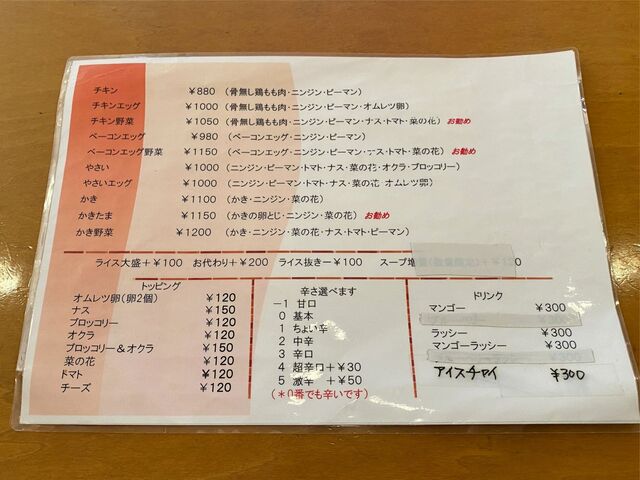 チキン ￥880 (骨無し鶏もも肉・ニンジン・ピーマン)
チキンエッグ ￥1000 (骨無し鶏もも肉・ニンジン・ピーマン・オムレツ卵)
チキン野菜 ￥1050 (骨無し鶏もも肉・ニンジン・ピーマン・ナス・トマト・菜の花) お勧め
ベーコンエッグ ￥980 (ベーコンエッグ・ニンジン・ピーマン)
ベーコンエッグ野菜 ￥1150 (ベーコンエッグ・ニンジン・ピーマン・ナス・トマト・菜の花) お勧め
やさい ￥1000 (ニンジン・ピーマン・トマト・ナス・菜の花・オクラ・ブロッコリー)
やさいエッグ ￥1000 (ニンジン・ピーマン・トマト・ナス・菜の花・オムレツ卵)
かき ￥1100 (かき・ニンジン・菜の花)
かきたま ￥1150 (かきの卵とじ・ニンジン・菜の花) お勧め
かき野菜 ￥1200 (かき・ニンジン・菜の花・ナス・トマト・ピーマン)
ライス大盛＋￥100 お代わり＋￥200 ライス抜きー￥100 スープ増
トッピング
オムレツ卵(卵2個) ￥120
ナス ￥150
ブロッコリー ￥120
オクラ ￥120
ブロッコリー＆オクラ ￥150
菜の花 ￥120
トマト ￥120
チーズ ￥120
辛さ選べます
－1 甘口
0 基本
1 ちょい辛
2 中辛
3 辛口
4 超辛口＋￥30
5 激辛 ＋￥50
(＊0番でも辛いです)
ドリンク
マンゴー ￥300
ラッシー ￥300
マンゴーラッシー ￥300
アイスチャイ ￥300